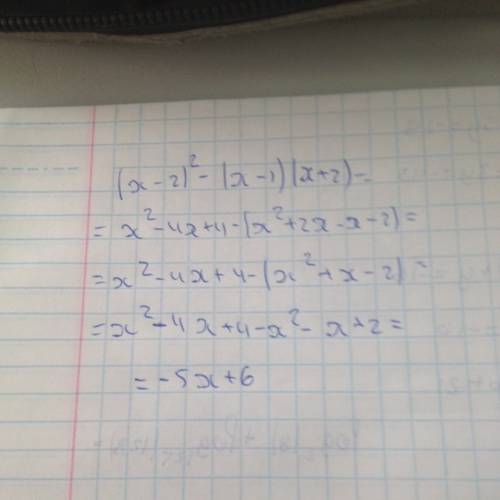 (x-2)²-(x-1)(x+2)=
=x²-4x+4-(x²+2x-x-2)=
=x²-4x+4-(x²+x-2)=
=x²-4x+4-x²-x+2=
=-5x+6